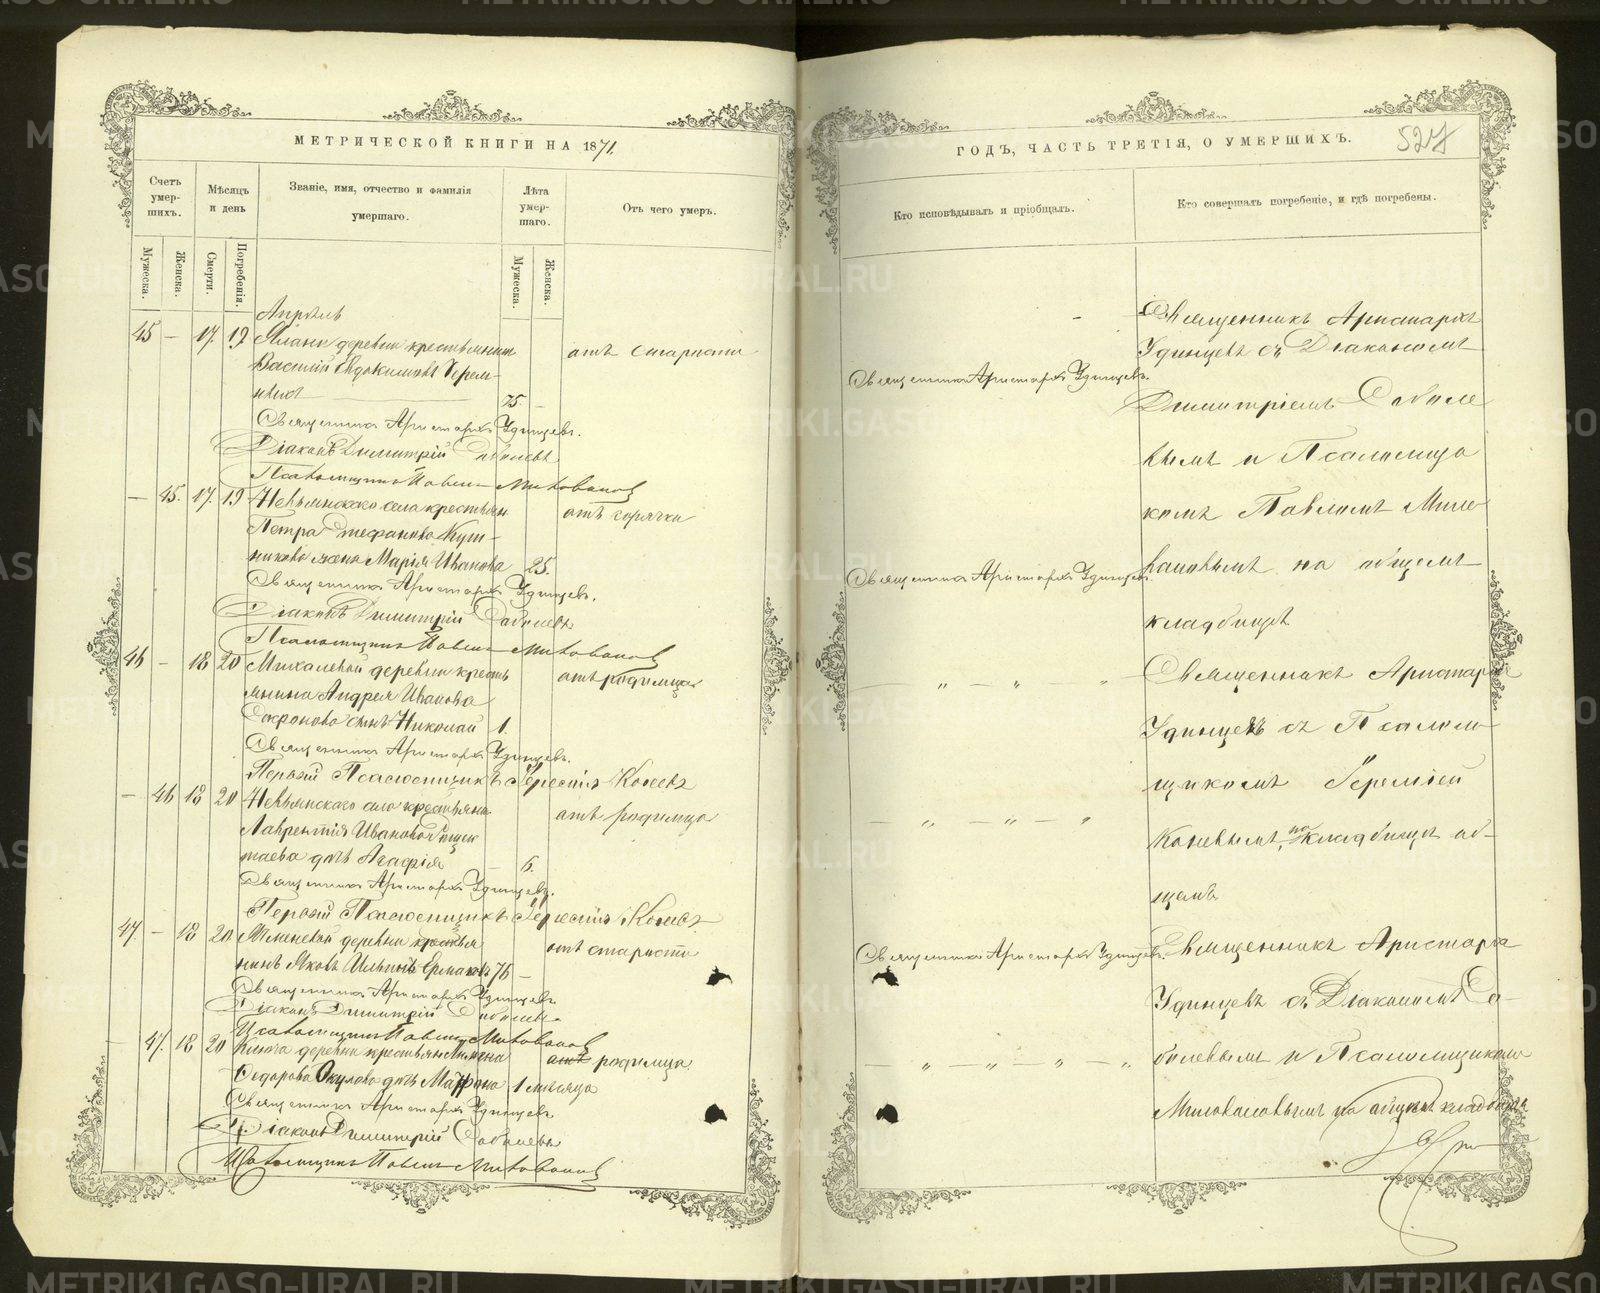 МЕТРИЧЕСКОЙ КНИГИ НА 1871
Счетъ умер-шихъ.
Мѣсяцъ и день
Званіе, имя, отчество и фамилія умершаго.
Лѣта умер-шаго.
Отъ чего умеръ.
Мужеска.
Женска.
Смерти.
Погребенія.
Мужеска.
Женска.
Апрѣль
45 — 17. 19 деревни крестьянинъ
Василій Евдокимовъ
75. отъ старости
Священникъ Аристархъ Удинцевъ.
Діаконъ Димитрій Соболевъ
Псаломщикъ Павелъ Миловановъ
— 45. 17. 19 Невьянскаго села крестьян
Петра Стефанова
жена Марія Иванова 25. отъ горячки
Священникъ Аристархъ Удинцевъ.
Діаконъ Димитрій Соболевъ
Псаломщикъ Павелъ Миловановъ
46 — 18 20 Михалевой деревни кресть
янина Андрея Иванова
Софронова сынъ Николай 1. отъ родимца
Священникъ Аристархъ Удинцевъ.
Первый Псаломщикъ Іеремія
— 46 18 20 Невьянскаго села крестьяна
Лаврентія Иванова
дочь Агафія 6. отъ родимца
Священникъ Аристархъ Удинцевъ.
Первый Псаломщикъ Іеремія
47. — 18 20 деревни крестья
нинъ Яковъ Ильинъ Ермаковъ 76 — отъ старости
Священникъ Аристархъ Удинцевъ.
Діаконъ Димитрій Соболевъ
Псаломщикъ Павелъ Миловановъ
— 47. 18 20 Ключа деревни крестьянина
Федорова Окулова дочь 1 мѣсяца отъ родимца
Священникъ Аристархъ Удинцевъ
Діаконъ Димитрій Соболевъ
Псаломщикъ Павелъ Миловановъ
ГОДЪ, ЧАСТЬ ТРЕТІЯ, О УМЕРШИХЪ.
Кто исповѣдывалъ и пріобщалъ.
Кто совершалъ погребеніе, и гдѣ погребены.
Священникъ Аристархъ
Удинцевъ съ Діакономъ
Священникъ Аристархъ Удинцевъ.
Димитріемъ Соболе
вымъ и Псаломщи
комъ Павломъ Мило
Священникъ Аристархъ Удинцевъ
вановымъ на общемъ
кладбищѣ
Священникъ Аристархъ
Удинцевъ съ Псалом
щикомъ Іереміей
на кладбищѣ об-
щемъ
Священникъ Аристархъ Удинцевъ.
Священникъ Аристархъ
Удинцевъ съ Діакономъ Со-
болевымъ и Псаломщикомъ
Миловановымъ на общемъ кладбищѣ
METRIKI.GASO-URAL.RU